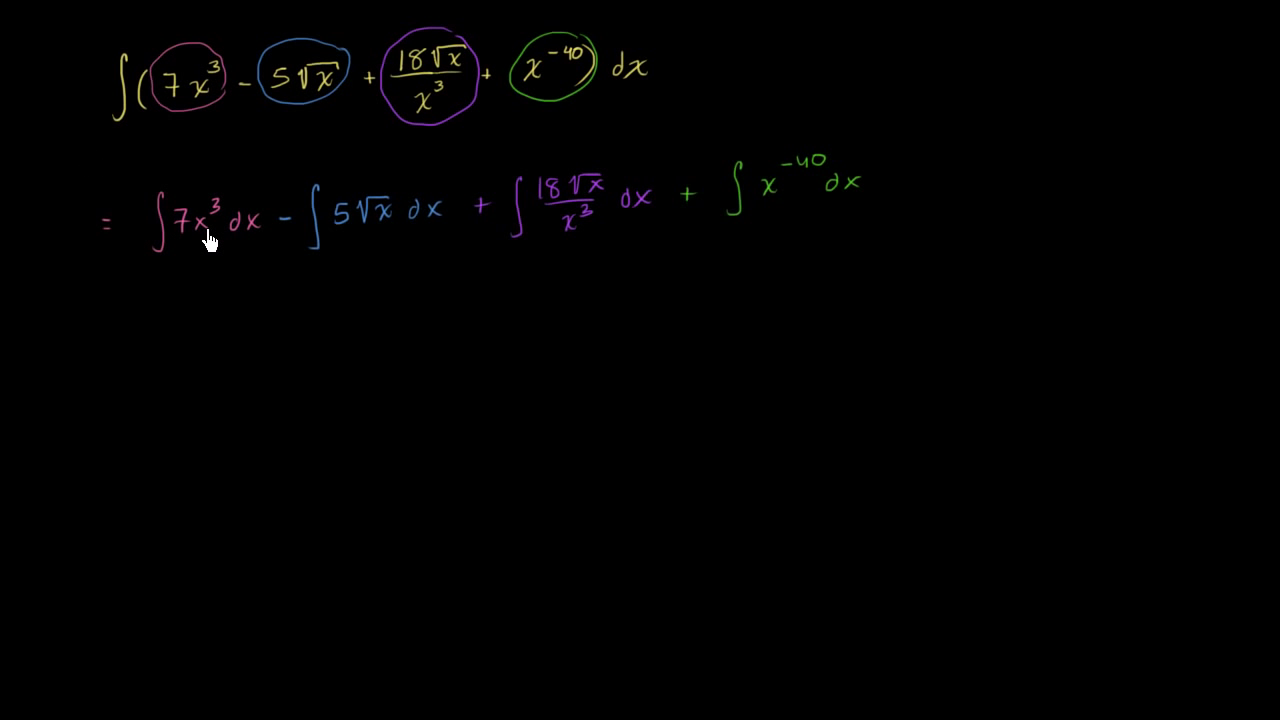 ∫(7x³ - 5√x + 18√x/x³ + x⁻⁴⁰) dx
= ∫7x³ dx - ∫5√x dx + ∫18√x/x³ dx + ∫x⁻⁴⁰ dx